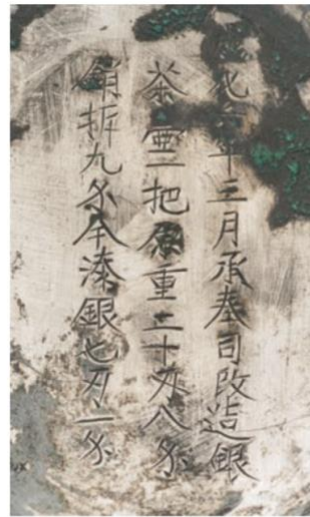 化年三月承奉司改造銀
茶壺一把原重二十刄八分
銷折九分今湊銀七刄一分